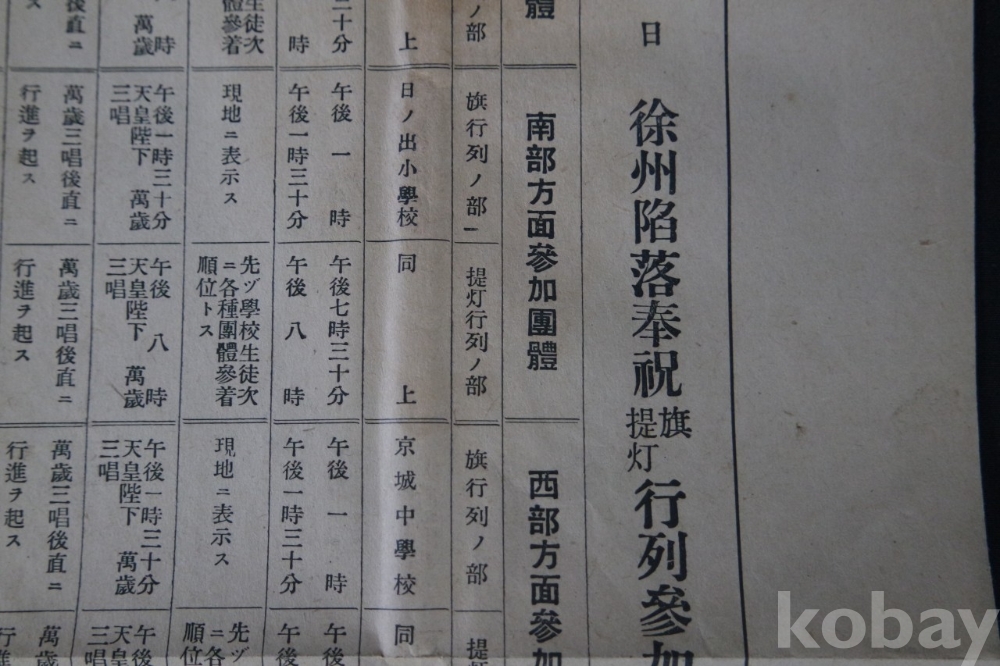 日
徐州陷落奉祝
旗
提灯
行列參加
體
南部方面參加團體
西部方面參加
ノ部
旗行列ノ部
提灯行列ノ部
旗行列ノ部
提
上
日ノ出小學校
同上
京城中學校
同
二十分
時
午後一時
午後一時三十分
午後七時三十分
午後八時
午後一時
午後一時三十分
午後
午後
生徒次
體參着
現地ニ表示ス
先ヅ學校生徒次
ニ各種團體參着
順位トス
現地ニ表示ス
先ヅ
ニ各
順位
時
萬歲
午後一時三十分
天皇陛下 萬歲
三唱
午後八時
天皇陛下 萬歲
三唱
午後一時三十分
天皇陛下 萬歲
三唱
午後
天皇
三唱
後直ニ
萬歲三唱後直ニ
行進ヲ起ス
萬歲三唱後直ニ
行進ヲ起ス
萬歲三唱後直ニ
行進ヲ起ス
萬歲
行進ヲ
kobay